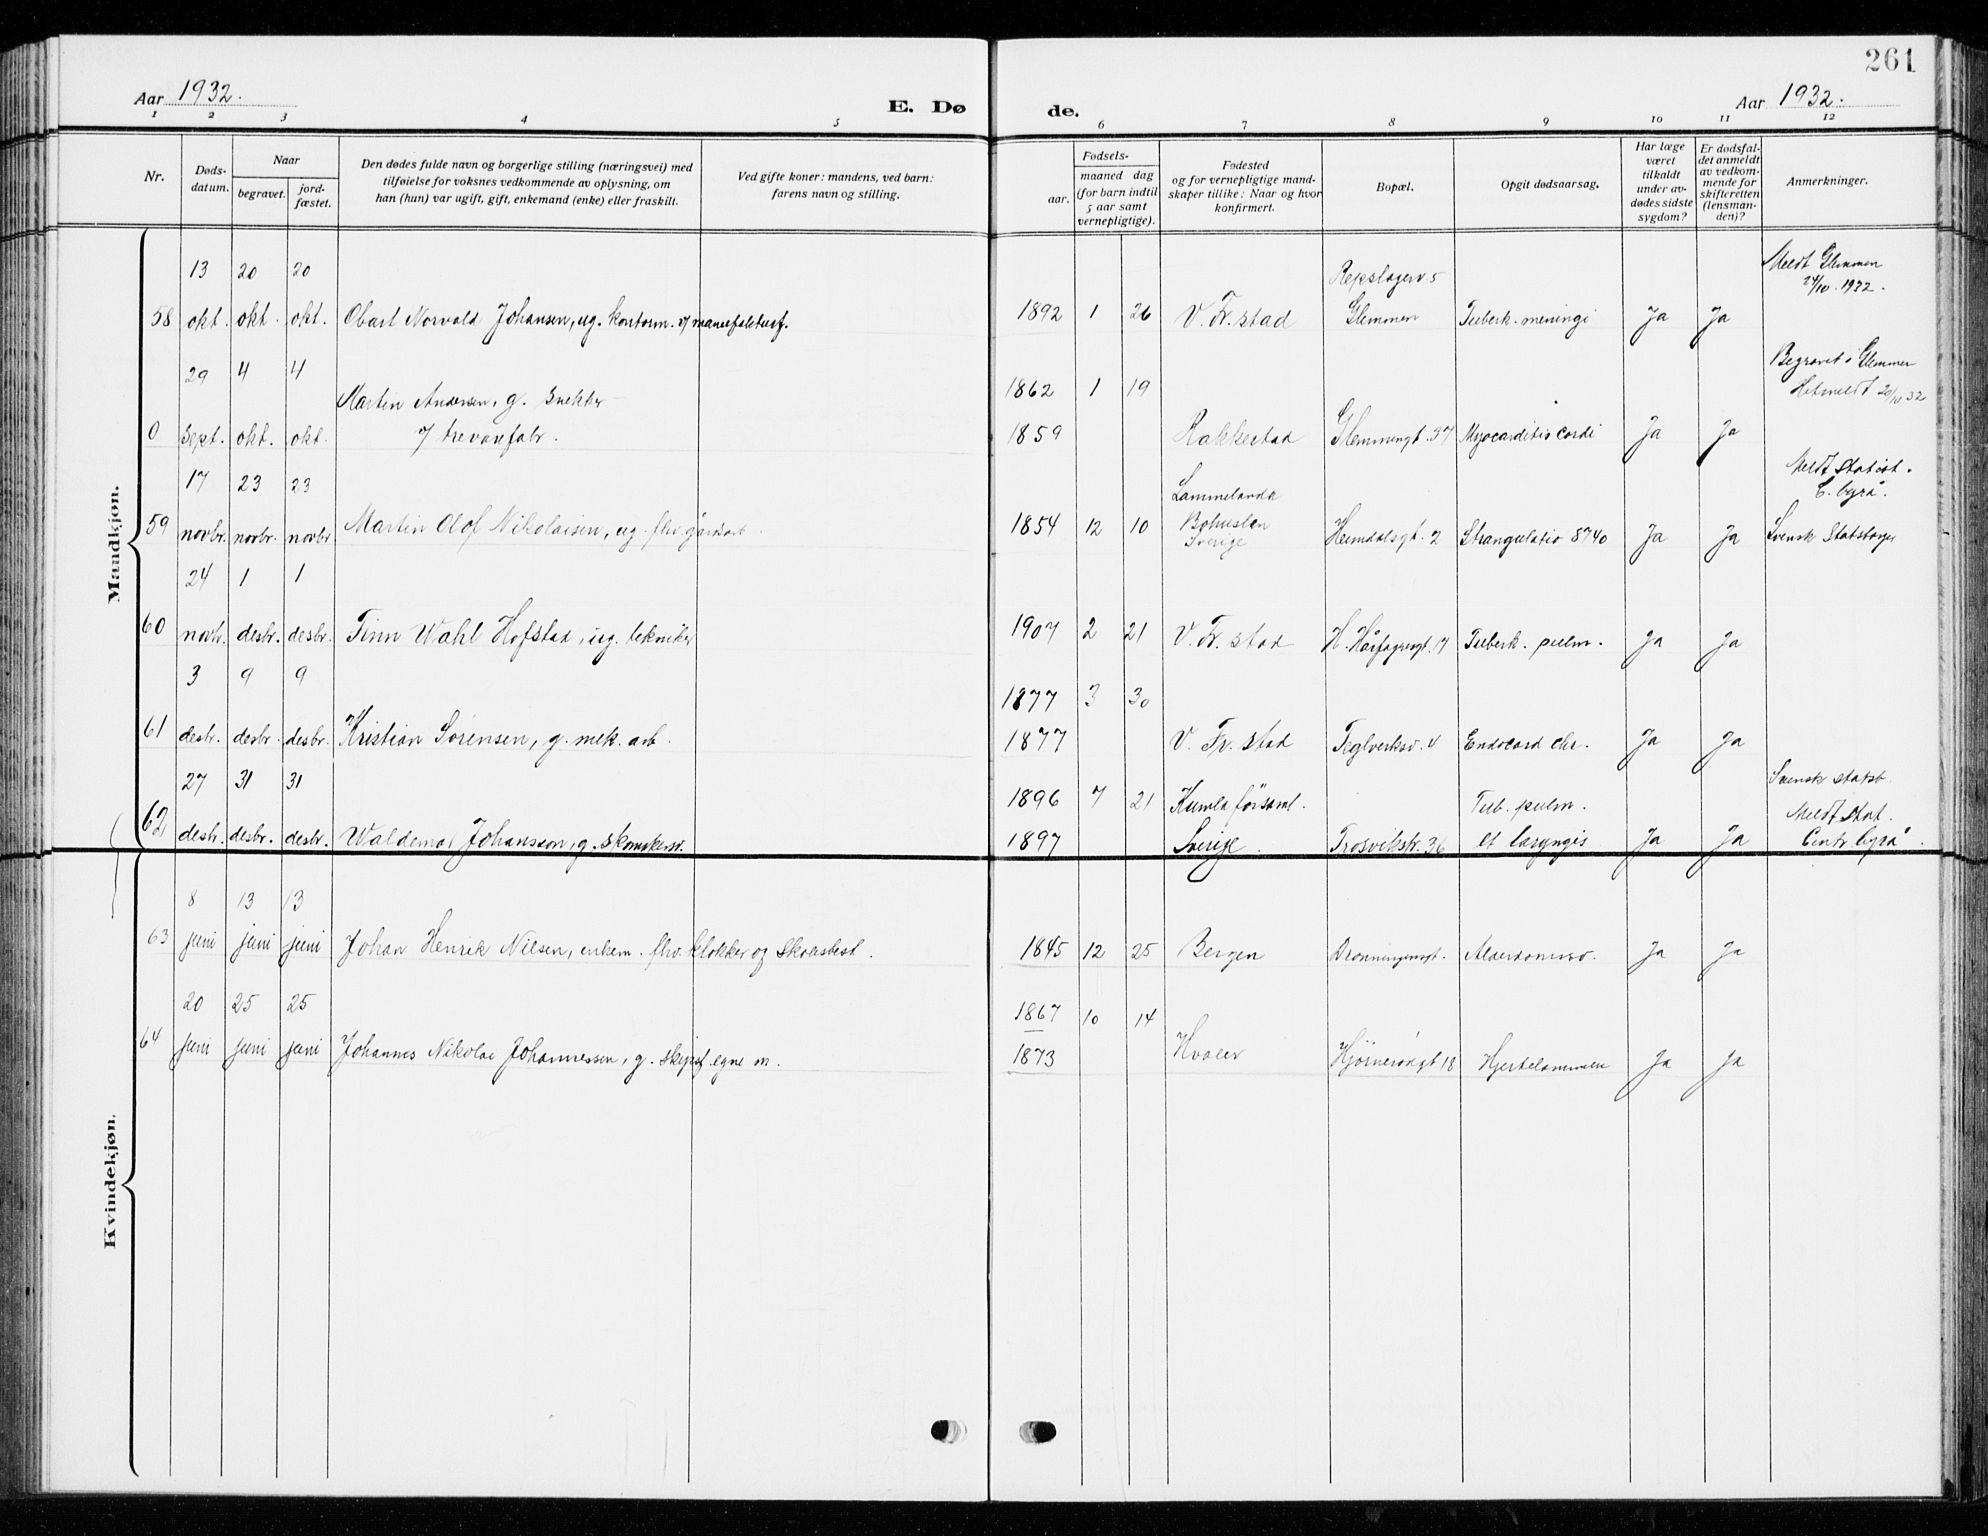 261
Aar 1932. E. Dø de. Aar 1932.
1 2 3 4 5 6 7 8 9 10 11 12
Nr.
Døds-
datum.
Naar
begravet.
jord-
fæstet.
Den dødes fulde navn og borgerlige stilling (næringsvei) med
tilføielse for voksnes vedkommende av oplysning, om
han (hun) var ugift, gift, enkemand (enke) eller fraskilt.
Ved gifte koner: mandens, ved barn:
farens navn og stilling.
Fødsels-
aar.
maaned dag
(for barn indtil
5 aar samt
vernepligtige).
Fødested
og for vernepligtige mand-
skaper tillike: Naar og hvor
konfirmert.
Bopæl.
Opgit dødsaarsag.
Har læge
været
tilkaldt
under av-
dødes sidste
sygdom?
Er dødsfal-
det anmeldt
av vedkom-
mende for
skifteretten
(lensman-
den)?
Anmerkninger.
Mandkjøn.
13 20 20 Repslagerv 5 Meldt Glemmen
24/10. 1932.
58 okt. okt. okt. Obart Norvald Johansen, ug. kontorm. v/ manufakturf. 1892 1 26 V. Fr. stad Glemmen Tuberk. meningi Ja Ja
29 4 4 1862 1 19 Begravet i Glemmen
Martin Andersen, g. snekker Hitmeldt 20/10 32
0 sept. okt. okt. v/ trevarefabr. 1859 Rakkestad Glemmengt. 37 Myocarditis cordi Ja Ja
17 23 23 Lammelanda Meldt statist.
C. byrå.
59 novbr. novbr. novbr Martin Olof Nikolaisen, ug. fhv. gårdsarb. 1854 12 10 Bohuslen
Sverige Heimdalsgt. 2 Strangulatio 8740 Ja Ja Svensk Statsborger
24 1 1
60 novbr. desbr. desbr. Finn Wahl Hofstad, ug. tekniker 1907 2 21 V. Fr. stad H. Hårfagresgt. 17 Tuberk. pulm. Ja Ja
3 9 9 1877 3 30
61 desbr. desbr. desbr. Kristian Sørensen, g. mek. arb. 1877 V. Fr. stad Teglverksv. 4 Endocard chr. Ja Ja
27 31 31 1896 7 21 Kumla församl. Tub. pulm. Svensk statsb.
Meldt stat.
62 desbr. desbr. desbr. Waldemar Johansson, g. skomakersv. 1897 Sverige. Trosvikstr. 36 et laryngis Ja Ja Centr byrå.
Kvindekjøn.
8 13 13
63 juni juni juni Johan Henrik Nilsen, enkem. fhv. klokker og skolebest. 1845 12 25 Bergen Dronningensgt. Alderdomssv. Ja Ja
20 25 25 1867 10 14
64 juni juni juni Johannes Nikolai Johannessen, g. skipsf egne m. 1873 Hvaler Hjørnerødgt 18 Hjertelammelse Ja Ja